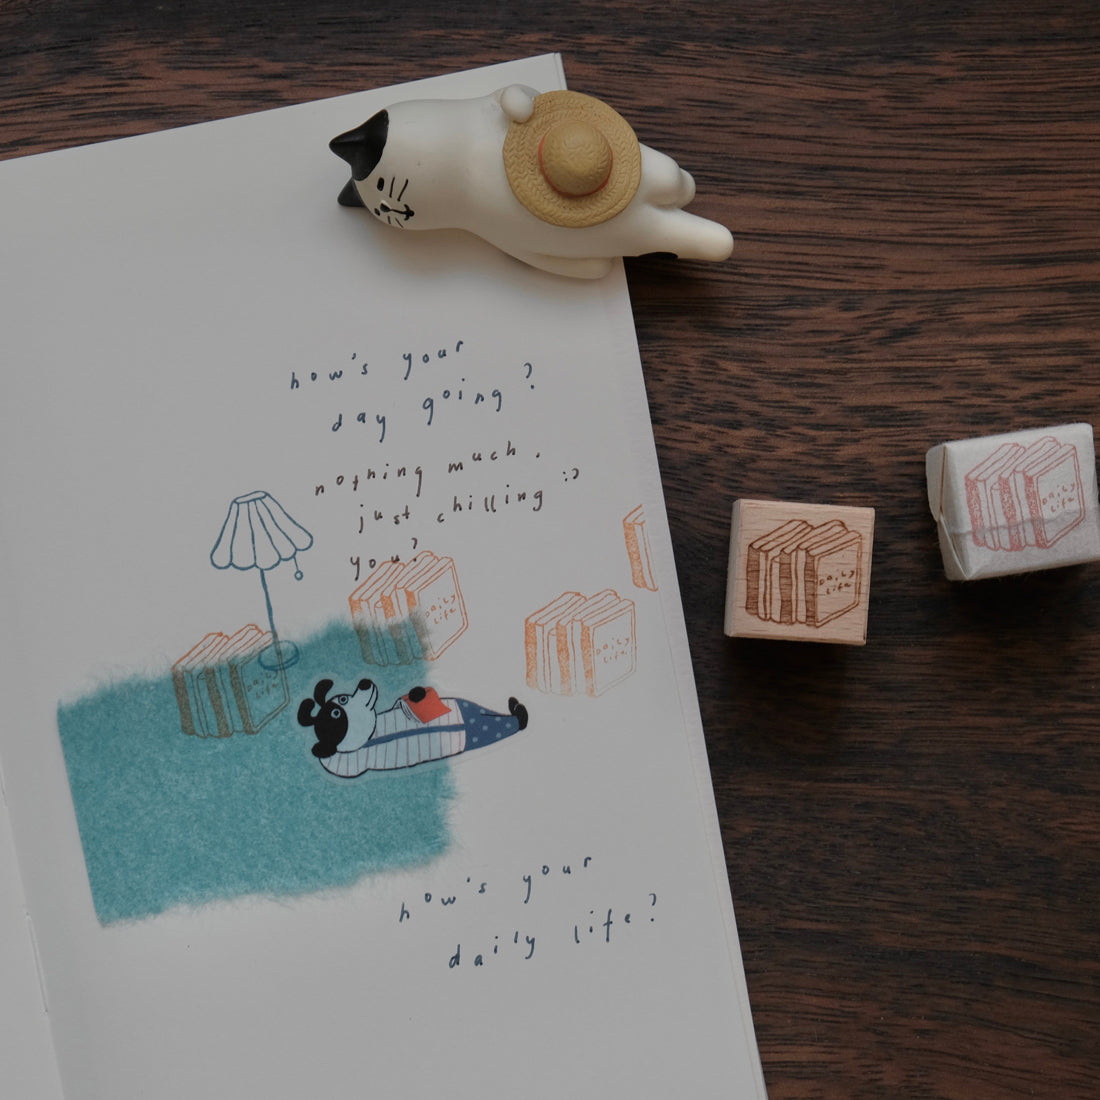 how's your
day going?
nothing much.
just chilling :)
you?
daily
life
daily
life
daily
life
how's your
daily life?
daily
life
daily
life